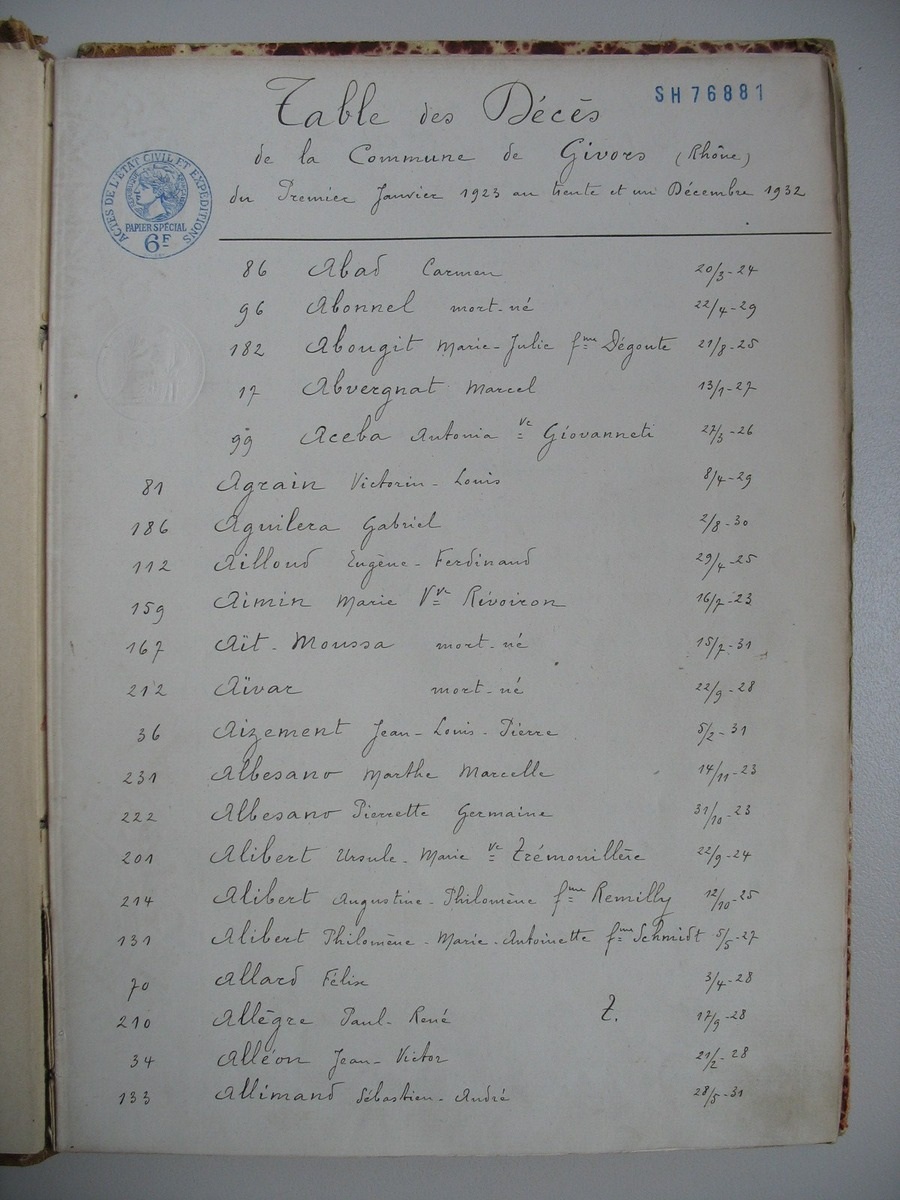 Table des Décès
SH 76881
de la Commune de Givors (Rhône)
du Premier Janvier 1923 au trente et un Décembre 1932
ACTES DE L'ÉTAT CIVIL ET EXPEDITIONS
PAPIER SPÉCIAL
6F
86 Abad Carmen 20/3-24
96 Abonnel mort-né 22/4-29
182 Abougit Marie-Julie fme Dégoute 21/8-25
17 Abvergnat Marcel 13/1-27
99 Aceba Antonia Ve Giovanneti 27/3-26
81 Agrain Victorin-Louis 8/4-29
186 Aguilera Gabriel 2/8-30
112 Ailloud Eugène-Ferdinand 29/4-25
159 Aimin Marie Vve Rivoiron 16/7-23
167 Aït-Moussa mort-né 15/7-31
212 Aïvar mort-né 22/9-28
36 Aizement Jean-Louis-Pierre 5/2-31
231 Albesano Marthe Marcelle 14/11-23
222 Albesano Pierrette Germaine 31/10-23
201 Alibert Ursule-Marie Ve Trémouillère 22/9-24
214 Alibert Augustine-Philomène fme Remilly 12/10-25
131 Alibert Philomène-Marie-Antoinette fme Schmidt 5/5-27
70 Allard Félix 3/4-28
210 Allègre Paul-René T. 17/9-28
34 Alléon Jean-Victor 21/2-28
133 Allimand Sébastien-André 28/5-31